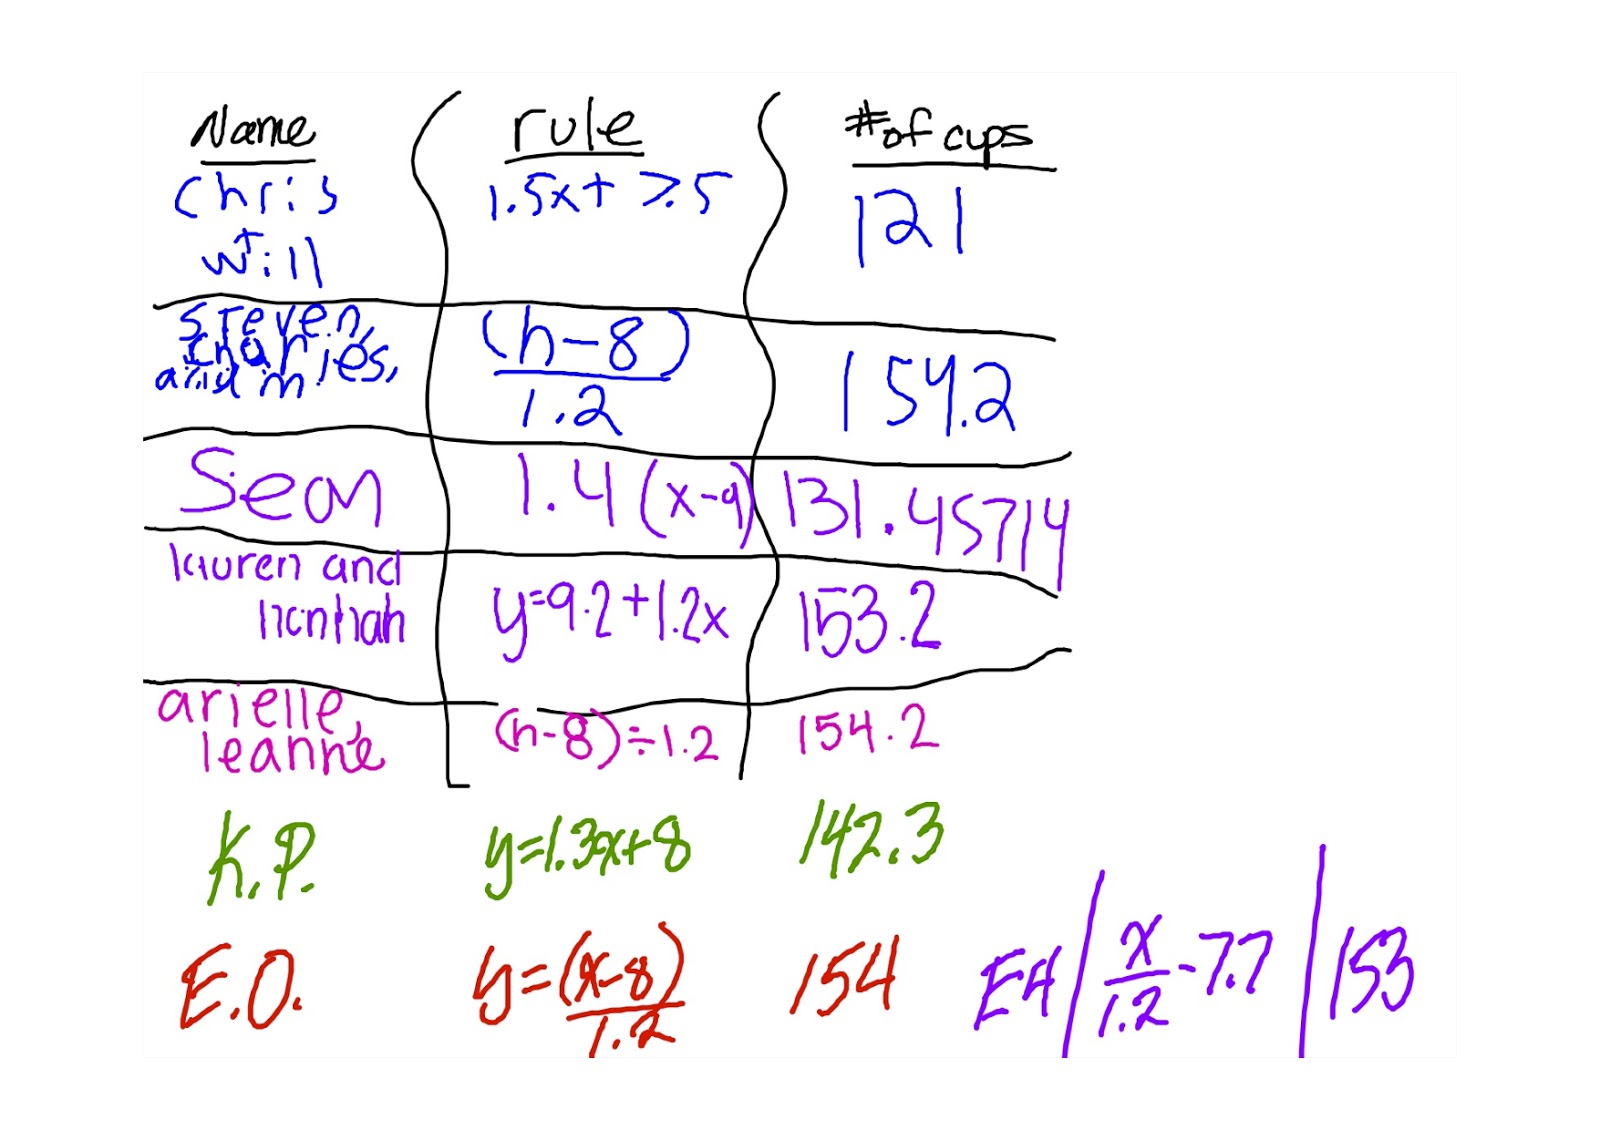 Name rule # of cups
Chris 1.5x + 7.5 121
+
will
Steven, (h-8) 154.2
charles, 1.2
and m
Sean 1.4 (x-9) 131.45714
lauren and y=9.2+1.2x 153.2
hannah
arielle, (h-8)÷1.2 154.2
leanne
K.P. y=1.3x+8 142.3
E.O. y=(x-8) 154 E4 x -7.7 153
1.2 1.2